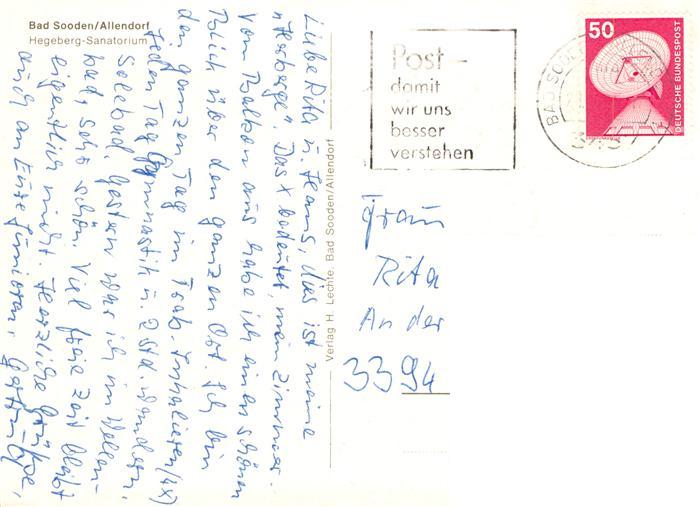 Bad Sooden/Allendorf
Hegeberg-Sanatorium
Liebe Rita u. Hans, dies ist meine
"Herberge". Das X bedeutet, mein Zimmer.
Vom Balkon aus habe ich einen schönen
Blick über den ganzen Ort. Ich bin
den ganzen Tag im Trab. Inhalieren (4x)
jeden Tag Gymnastik u. 2 Std. wandern.
Solebad. Gestern war ich im Wellen-
bad, sehr schön. Viel freie Zeit bleibt
eigentlich nicht. Herzliche Grüße,
auch an Eure Junioren,
Verlag H. Lechte, Bad Sooden/Allendorf
Post –
damit
wir uns
besser
verstehen
BAD SOODEN
50
DEUTSCHE BUNDESPOST
Frau
Rita
An der
3394